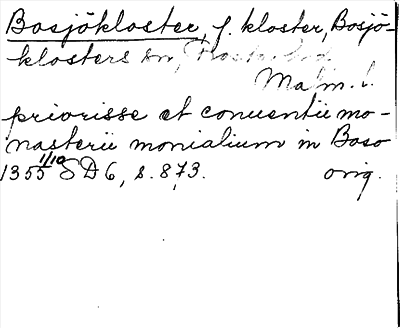 Bosjökloster, f. kloster, Bosjö-
klosters sn,
Malm. l.
priorisse et conuentui mo-
nasterii monialium in Boso
1355 1/10 SD 6, s. 873. orig.